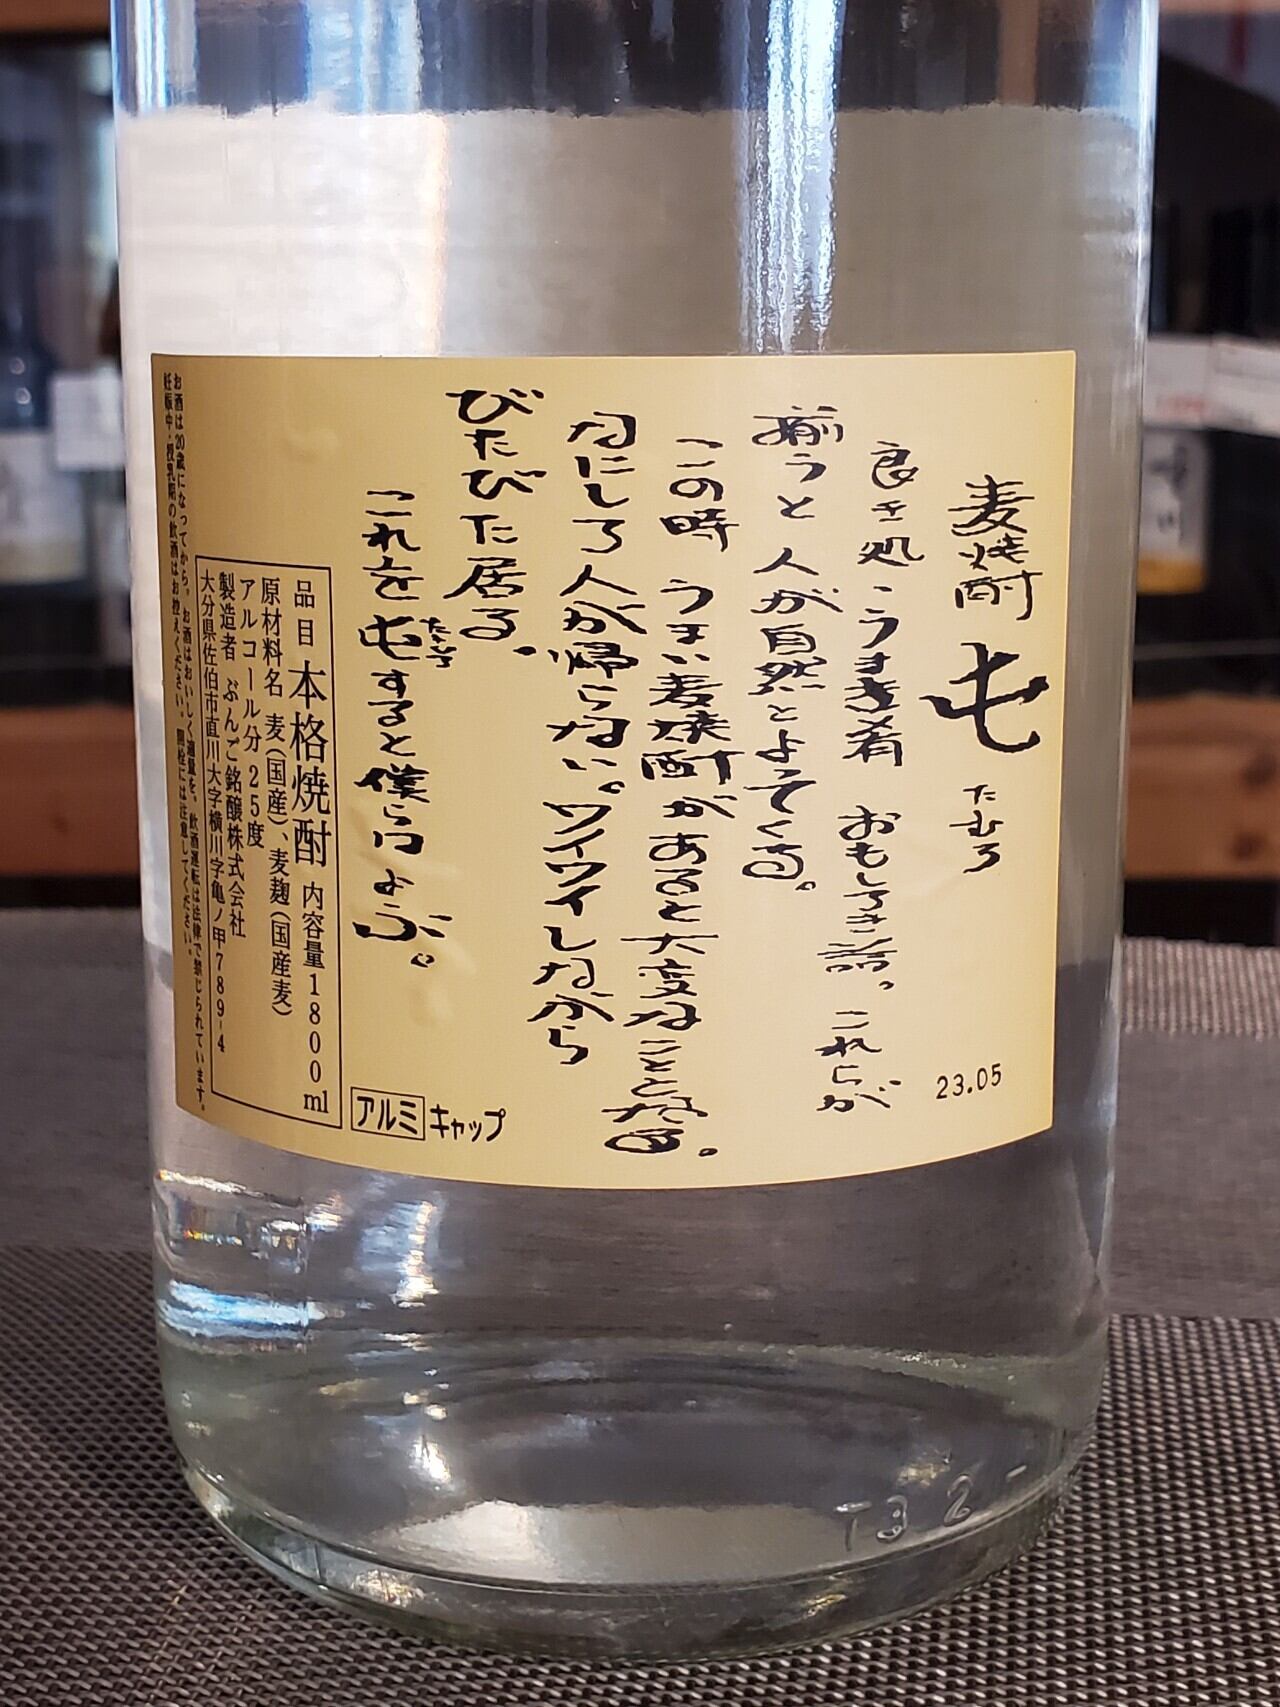 麦焼酎 屯 たむろ
良き処 うまき肴 おもしろき話。これらが
揃うと 人が自然とよってくる。
この時 うまい麦焼酎があると大変なこととなる。
なにしろ人が帰らない。ワイワイしながら
びたびた居る。
これを屯すると僕らはよぶ。
たむろ
23.05
アルミキャップ
品目 本格焼酎 内容量1800ml
原材料名 麦(国産)、麦麹(国産麦)
アルコール分 25度
製造者 ぶんご銘醸株式会社
大分県佐伯市直川大字横川字亀ノ甲789-4
お酒は20歳になってから。お酒はおいしく適量を。飲酒運転は法律で禁じられています。
妊娠中・授乳期の飲酒はお控えください。開栓には注意してください。
T32-